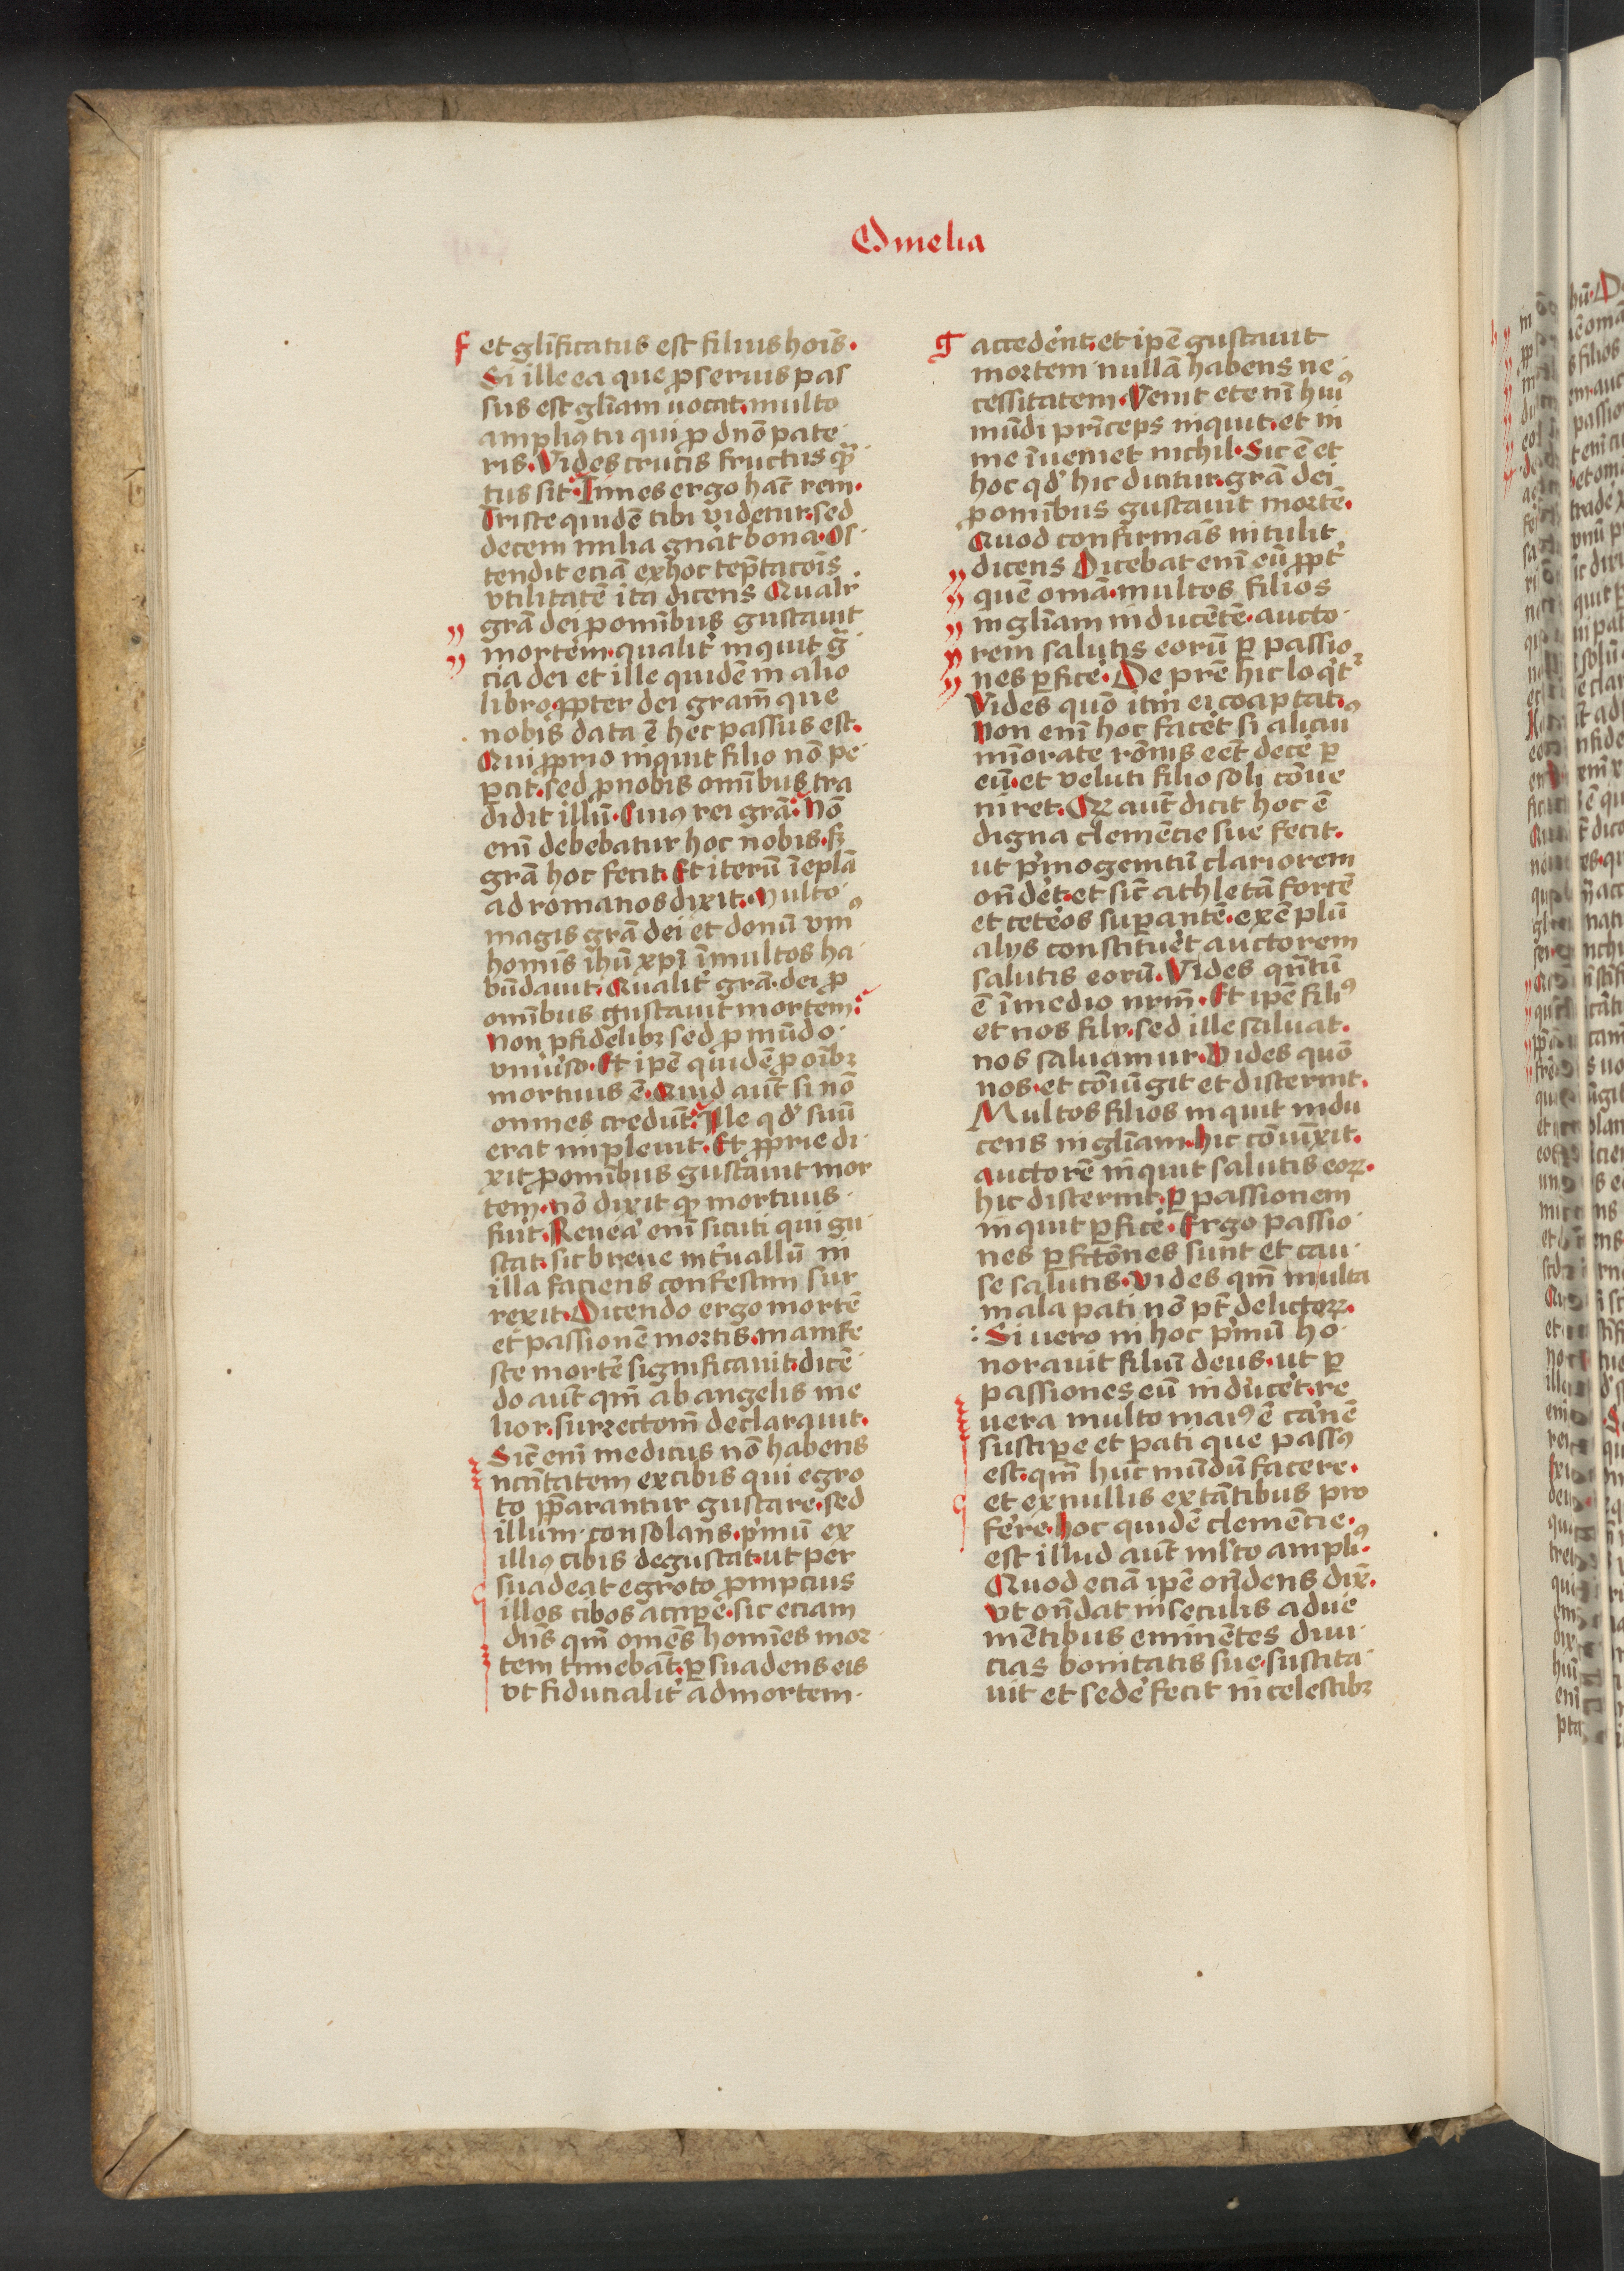 Omelia
f et gl̄ificatus est filius hoīs.
Si ille ea que ꝓ seruis pas
sus est gl̄iam uocat. multo
ampliꝰ tu qui ꝓ dn̄o pate
ris. Vides crucis fructus qͣ̄
tus sit. Times ergo hāc rem.
Triste quidē tibi videtur. sed
decem milia gn̄at bona. Os
tendit eciā ex hoc tēptacōis
vtilitatē ita dicens Qualr̄
grā dei ꝓ om̄ibus gustauit
mortem. qualit̾ inquit g̃
cia dei et ille quidē in alio
libro. ꝓpter dei gram̄ que
nobis data ē hec passus est.
Qui ꝓprio inquit filio nō pe
ꝑcit. sed ꝓ nobis om̄ibus tra
didit illū. Cuiꝰ rei grā. Nō
eni̅ debebatur hoc nobis. sꝫ
grā hoc fecit. Et iterū ī epl̄a
ad romanos dixit. Multo
magis grā dei et donū vniꝰ
homīs ihū xp̄i ī multos ha
būdauit. Qualit̾ grā. dei ꝓ
om̄ibus gustauit mortem.
Non ꝓ fidelibꝫ sed ꝓ mūdo
vniu̾so. Et ip̄e quidē ꝓ oībꝫ
mortuus ē. Quid aūt si nō
omnes credūt. Ille qd̾ suū
erat impleuit. Et ꝓprie di
xit ꝓ om̄ibus gustauit mor
tem. nō dixit qꝫ mortuus
fuit. Reuea̾ eni̅ sicuti qui gu
stat. sic breue int̾uallū in
illa faciens confestim sur
rexit. Dicendo ergo mortē
et passionē mortis. manife
ste mortē significauit. dicē
do aūt qm̄ ab angelis me
lior. surrectom̄ declarauit.
Sic̄ eni̅ medicus nō habens
ncc̄itatem ex cibis qui egro
to p̄parantur gustare. sed
illum consolans. p̾mū ex
illiꝰ cibis degustat. ut per
suadeat egroto ꝓmpcius
illos cibos accipe̾. sic eciam
dn̄s qm̄ omēs homīes mor
tem timebāt. ꝑsuadens eis
vt fiducialit̾ ad mortem
g accede̾nt. et ip̄e gustauit
mortem nullā habens ne
cessitatem. Venit eteni̅ huiꝰ
mūdi prīceps inquit. et in
me īueniet nichil. Sic ē et
hoc qd̾ hic dicitur. grā dei
ꝓ om̄ibus gustauit mortē.
Quod confirmās intulit
dicens Dicebat eni̅ eū ꝓpt̾
quē omā. multos filios
in gl̄iam inducētē. aucto
rem salutis eorū ꝑ passio
nes ꝑfice̾. De pr̄e hic loqͥtꝛ
Vides quō itm̄ ei coaptatꝰ.
Non eni̅ hoc face̾t si alicui
mīorate rōnis eēt dece̾ ꝑ
eū. et veluti filio soli cōue
niret. Qꝫ aūt dicit hoc ē
digna clemēcie sue fecit.
ut p̾mogenitū clariorem
on̄de̾t. et sic̄ athletā fortē
et cete̾os suꝑantē. exēplū
alijs constitue̾t auctorem
salutis eorū. Vides qn̄tū
ē ī medio nr̄m. Et ip̄e filiꝰ
et nos filij. sed ille saluat.
nos saluamur. Vides quō
nos. et cōiūgit et discernit.
Multos filios inquit indu
cens in gl̄iam. hic cōiūxit.
auctorē inquit salutis eoꝝ.
hic discernit. ꝑ passionem
inquit ꝑfice̾. Ergo passio
nes ꝑfc̄tōnes sunt et cau
se salutis. Vides qm̄ multa
mala pati nō pt̄ delictoꝝ.
Si uero in hoc p̾mū ho
norauit filiū deus. ut ꝑ
passiones eū induce̾t. re
uera multo maiꝰ ē ca̾nē
suscipe et pati que passꝰ
est. qm̄ hūc mūdū facere.
et ex nullis extātibus pro
fe̾re. hoc quidē clemēcie.
est illud aūt ml̾to ampliꝰ.
Quod eciā ip̄e on̄dens dix̾.
Vt on̄dat in seculis adue
niētibus eminētes diui
cias bonitatis sue. suscita
uit et sede̾ fecit in celestibꝫ